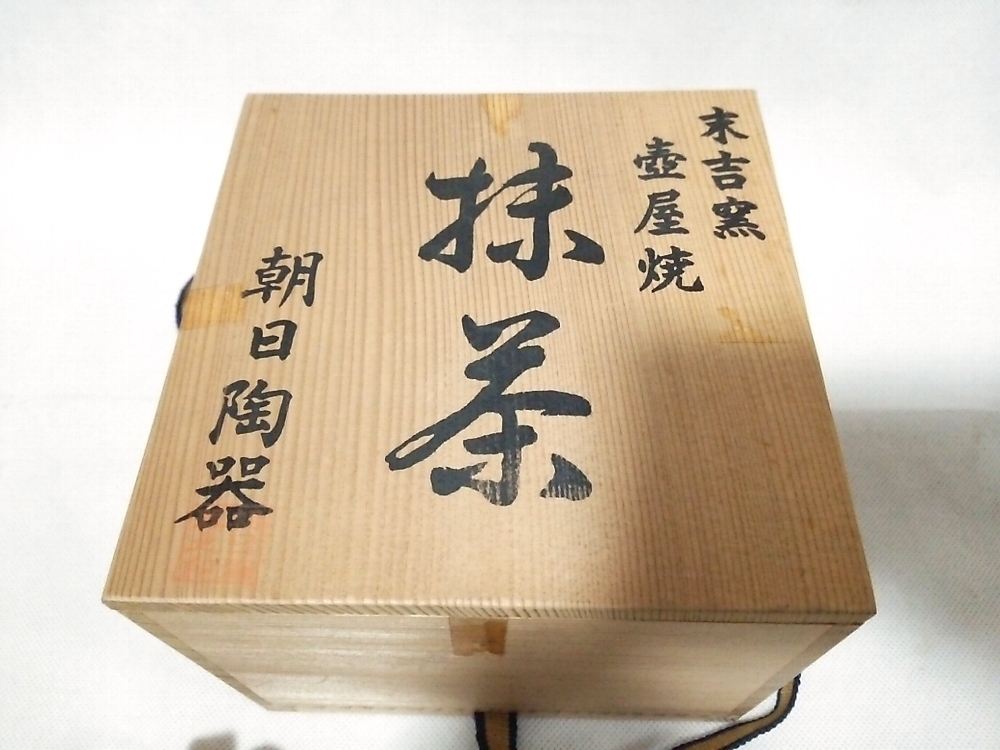 末吉窯
壺屋焼
抹茶
朝日陶器